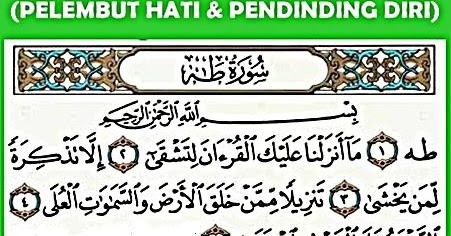 (PELEMBUT HATI & PENDINDING DIRI)
سُورَةُ طٰهٰ
بِسْمِ اللَّهِ الرَّحْمَٰنِ الرَّحِيمِ
طه ١ مَآ أَنزَلْنَا عَلَيْكَ ٱلْقُرْءَانَ لِتَشْقَىٰٓ ٢ إِلَّا تَذْكِرَةً
لِّمَن يَخْشَىٰ ٣ تَنزِيلًا مِّمَّنْ خَلَقَ ٱلْأَرْضَ وَٱلسَّمَٰوَٰتِ ٱلْعُلَى ٤